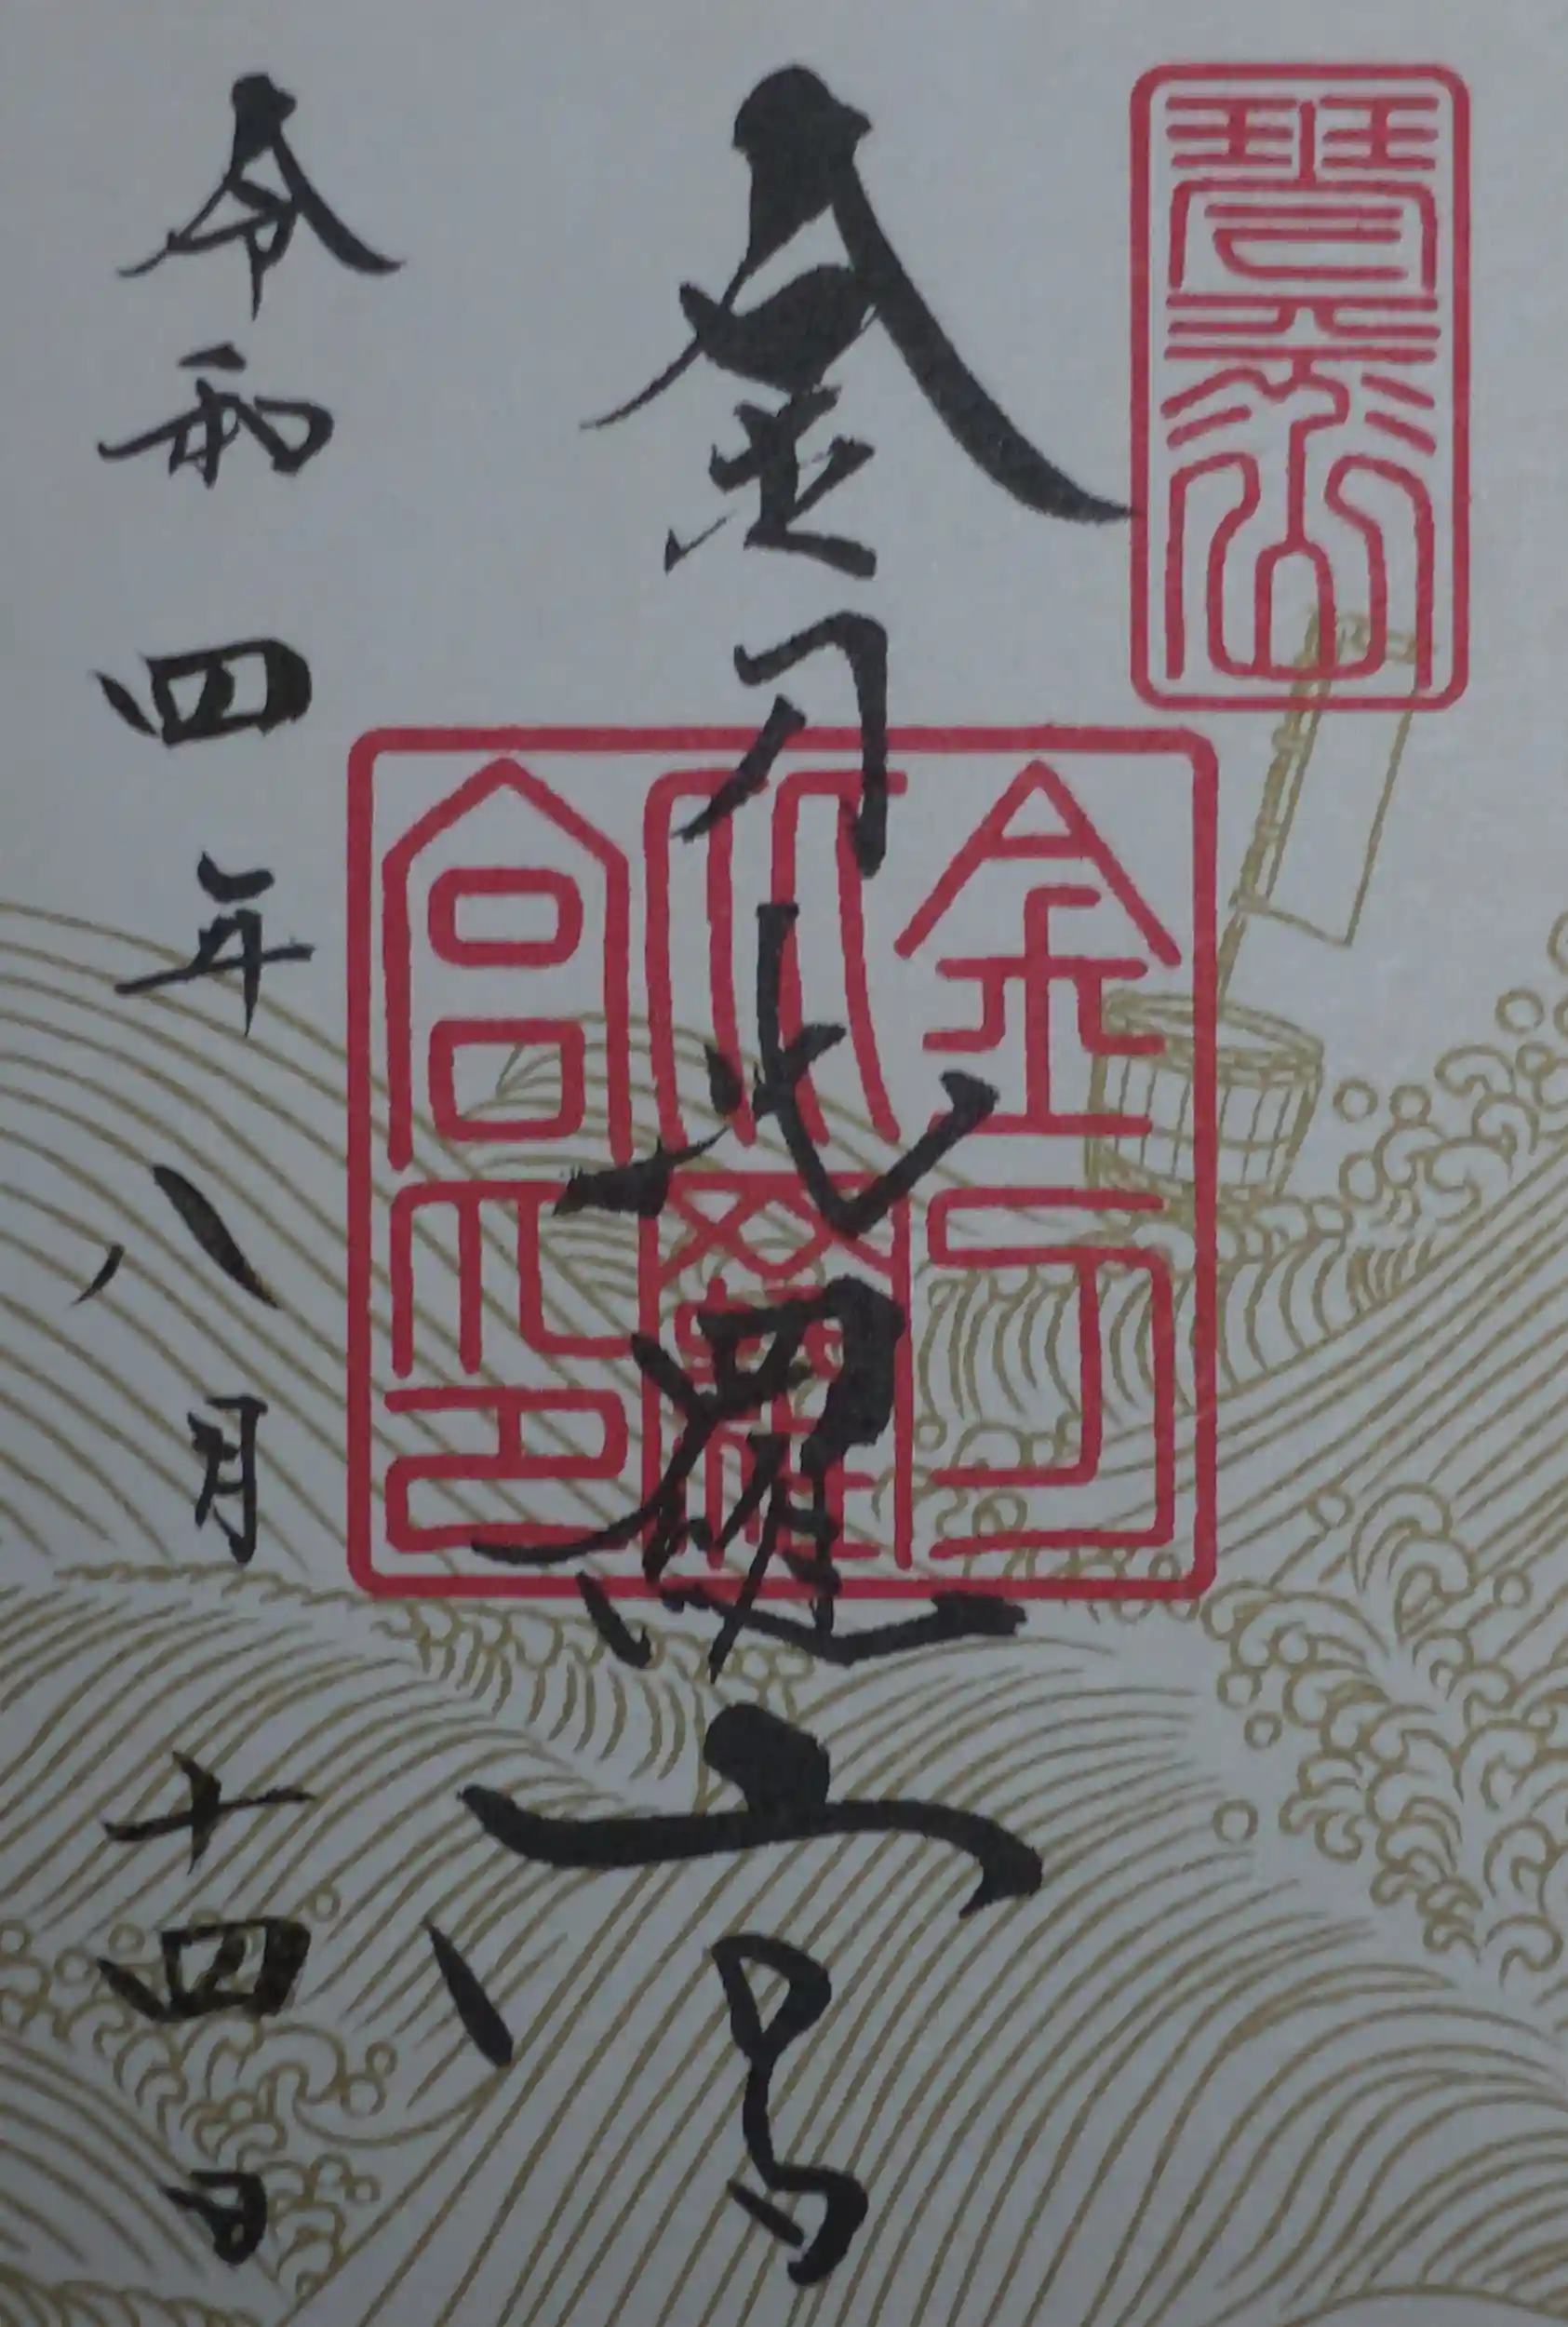 金刀比羅宮
金刀比羅宮印
令和四年八月十四日